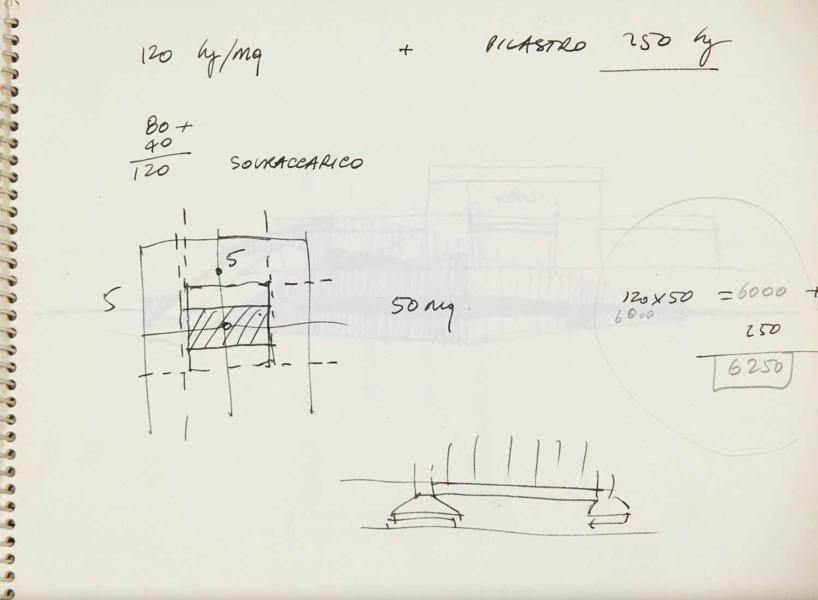 120 Kg/mq + PILASTRO 250 Kg
80 +
40
120 SOVRACCARICO
5
5
50 mq
120 x 50 = 6000 +
6000
250
6250